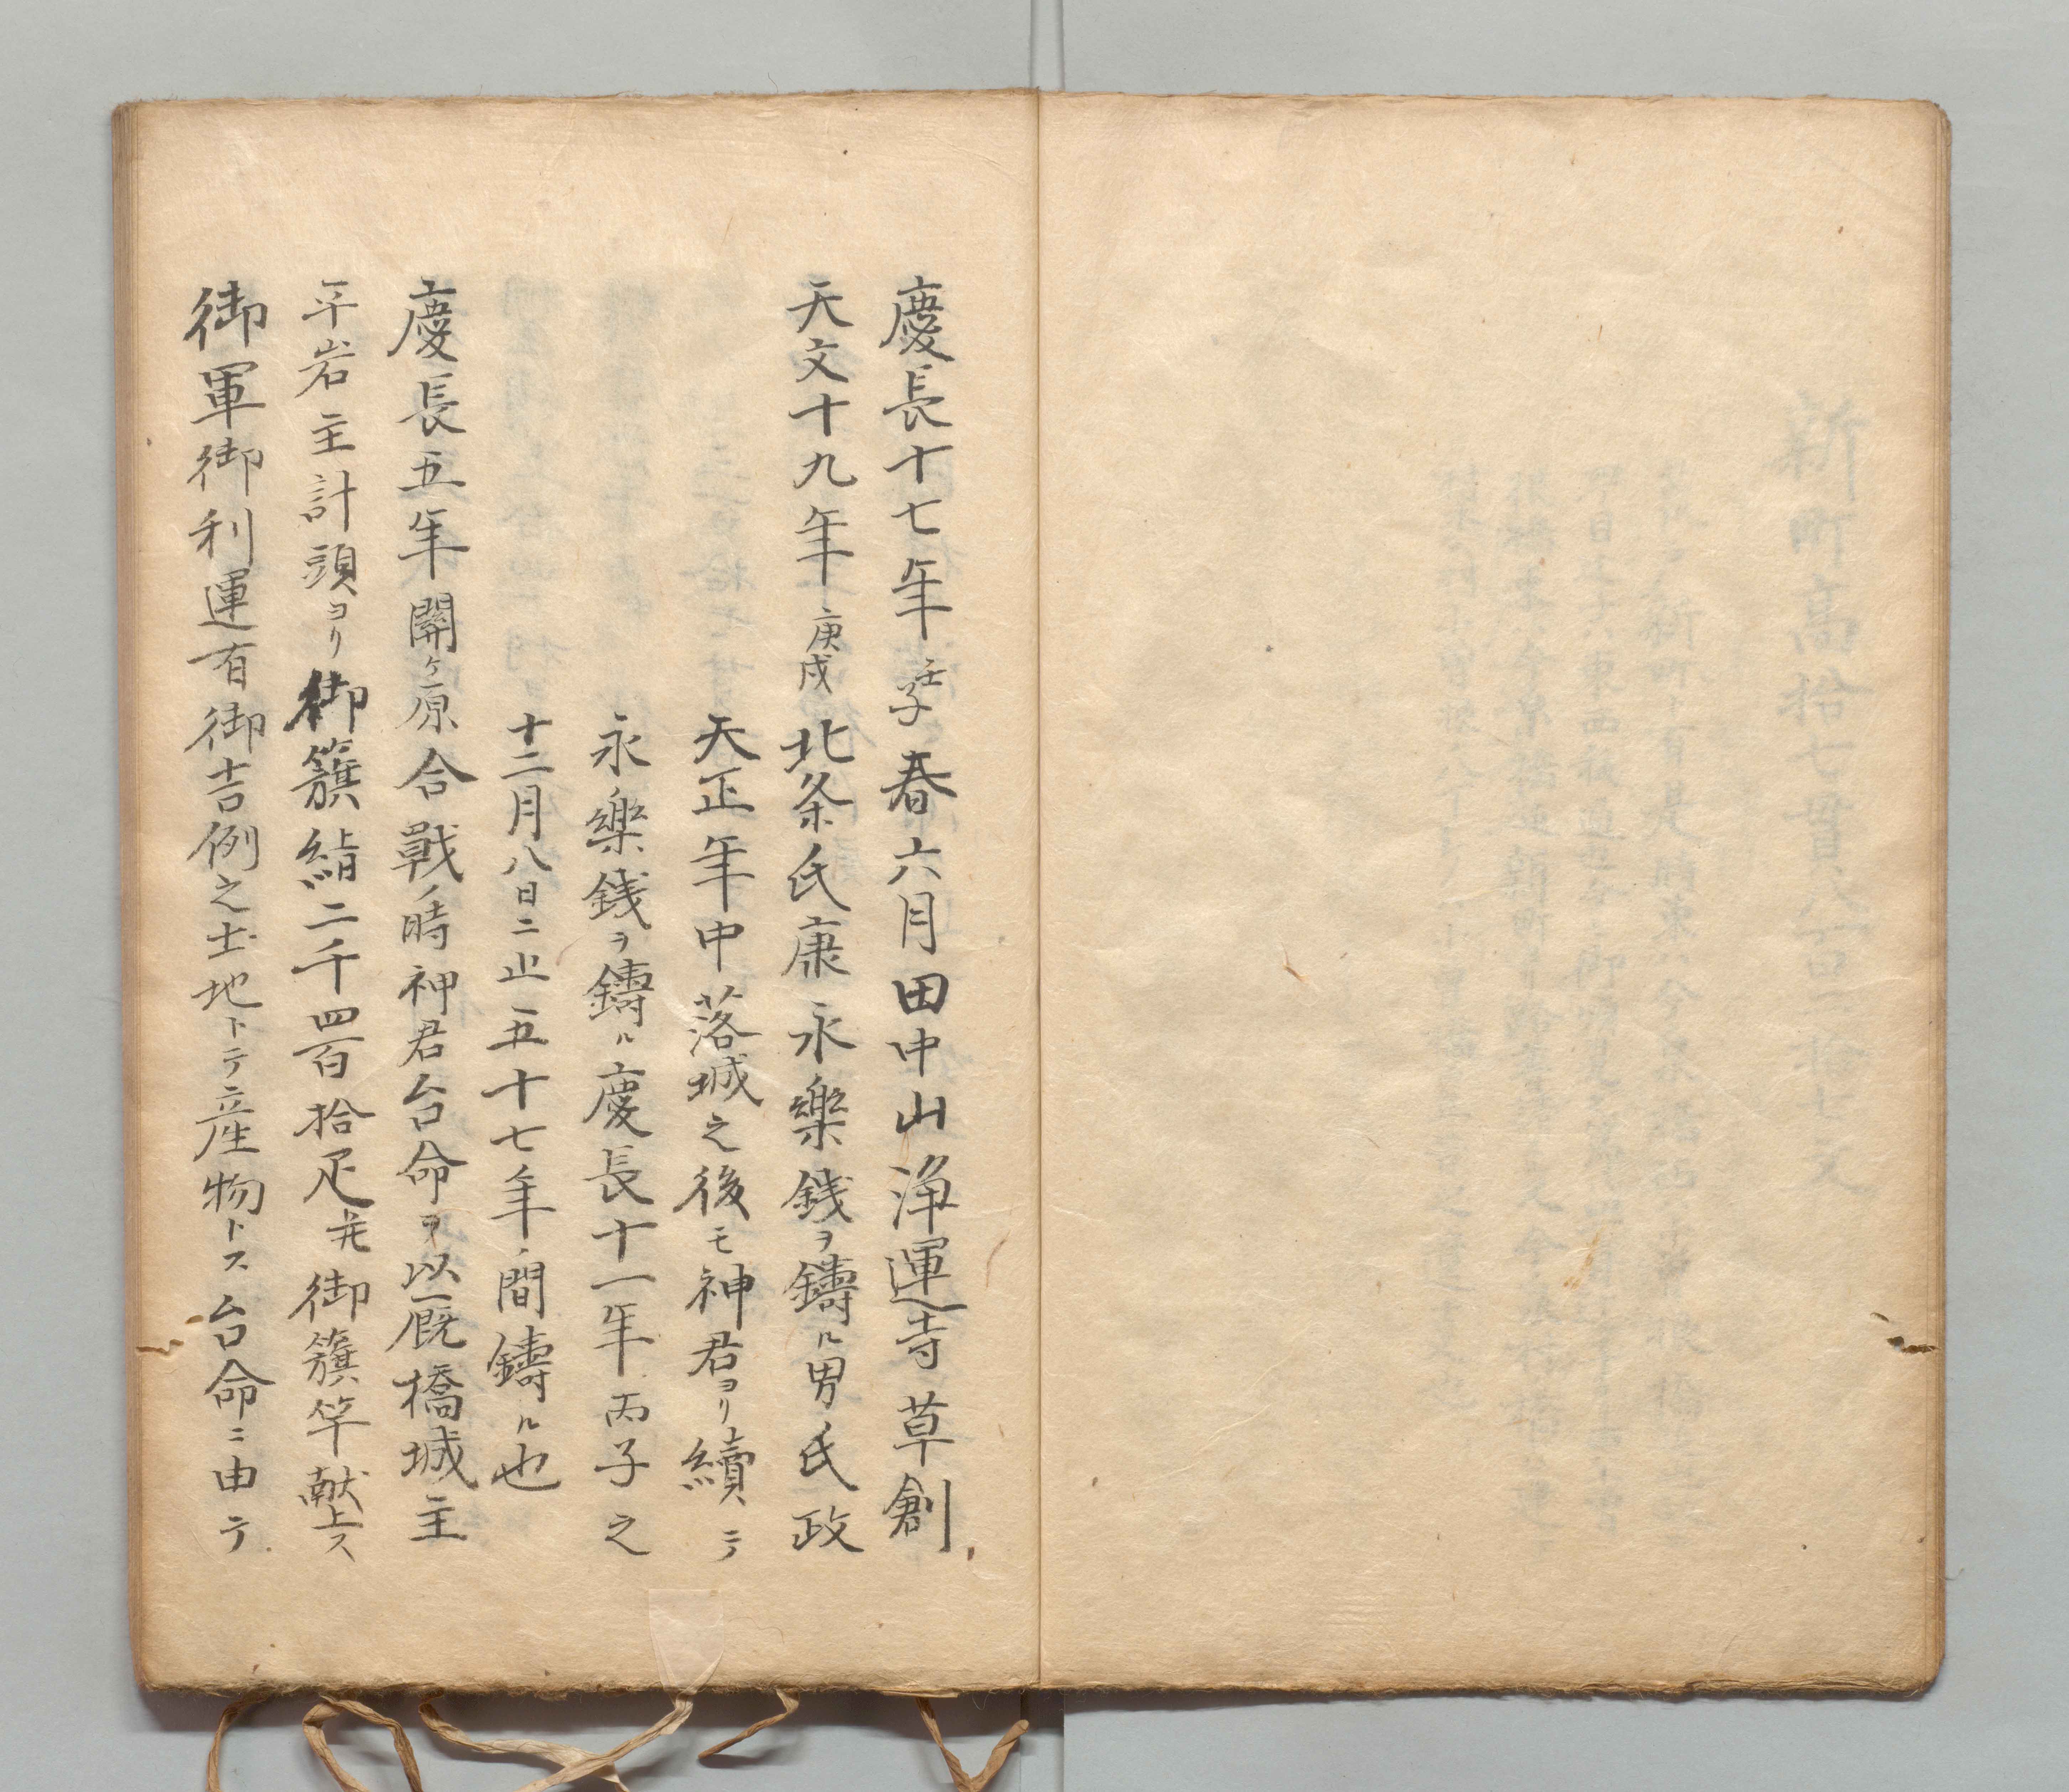 慶長十七年壬子春六月田中山浄運寺草創
天文十九年庚戌北条氏康永樂銭ヲ鑄ル男氏政
天正年中落城之後モ神君ヨリ續テ
永樂銭ヲ鑄ル慶長十一年丙子之
十二月八日ニ止五十七年ノ間鑄ル也
慶長五年関ケ原合戦ノ時神君台命ヲ以厩橋城主
平岩主計頭ヨリ御籏絹二千四百拾疋并御籏竿献上ス
御軍御利運有御吉例之土地トテ産物トス台命ニ由テ